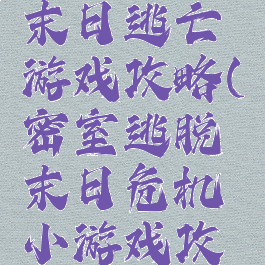 末日逃亡
游戏攻略(
密室逃脱
末日危机
小游戏攻